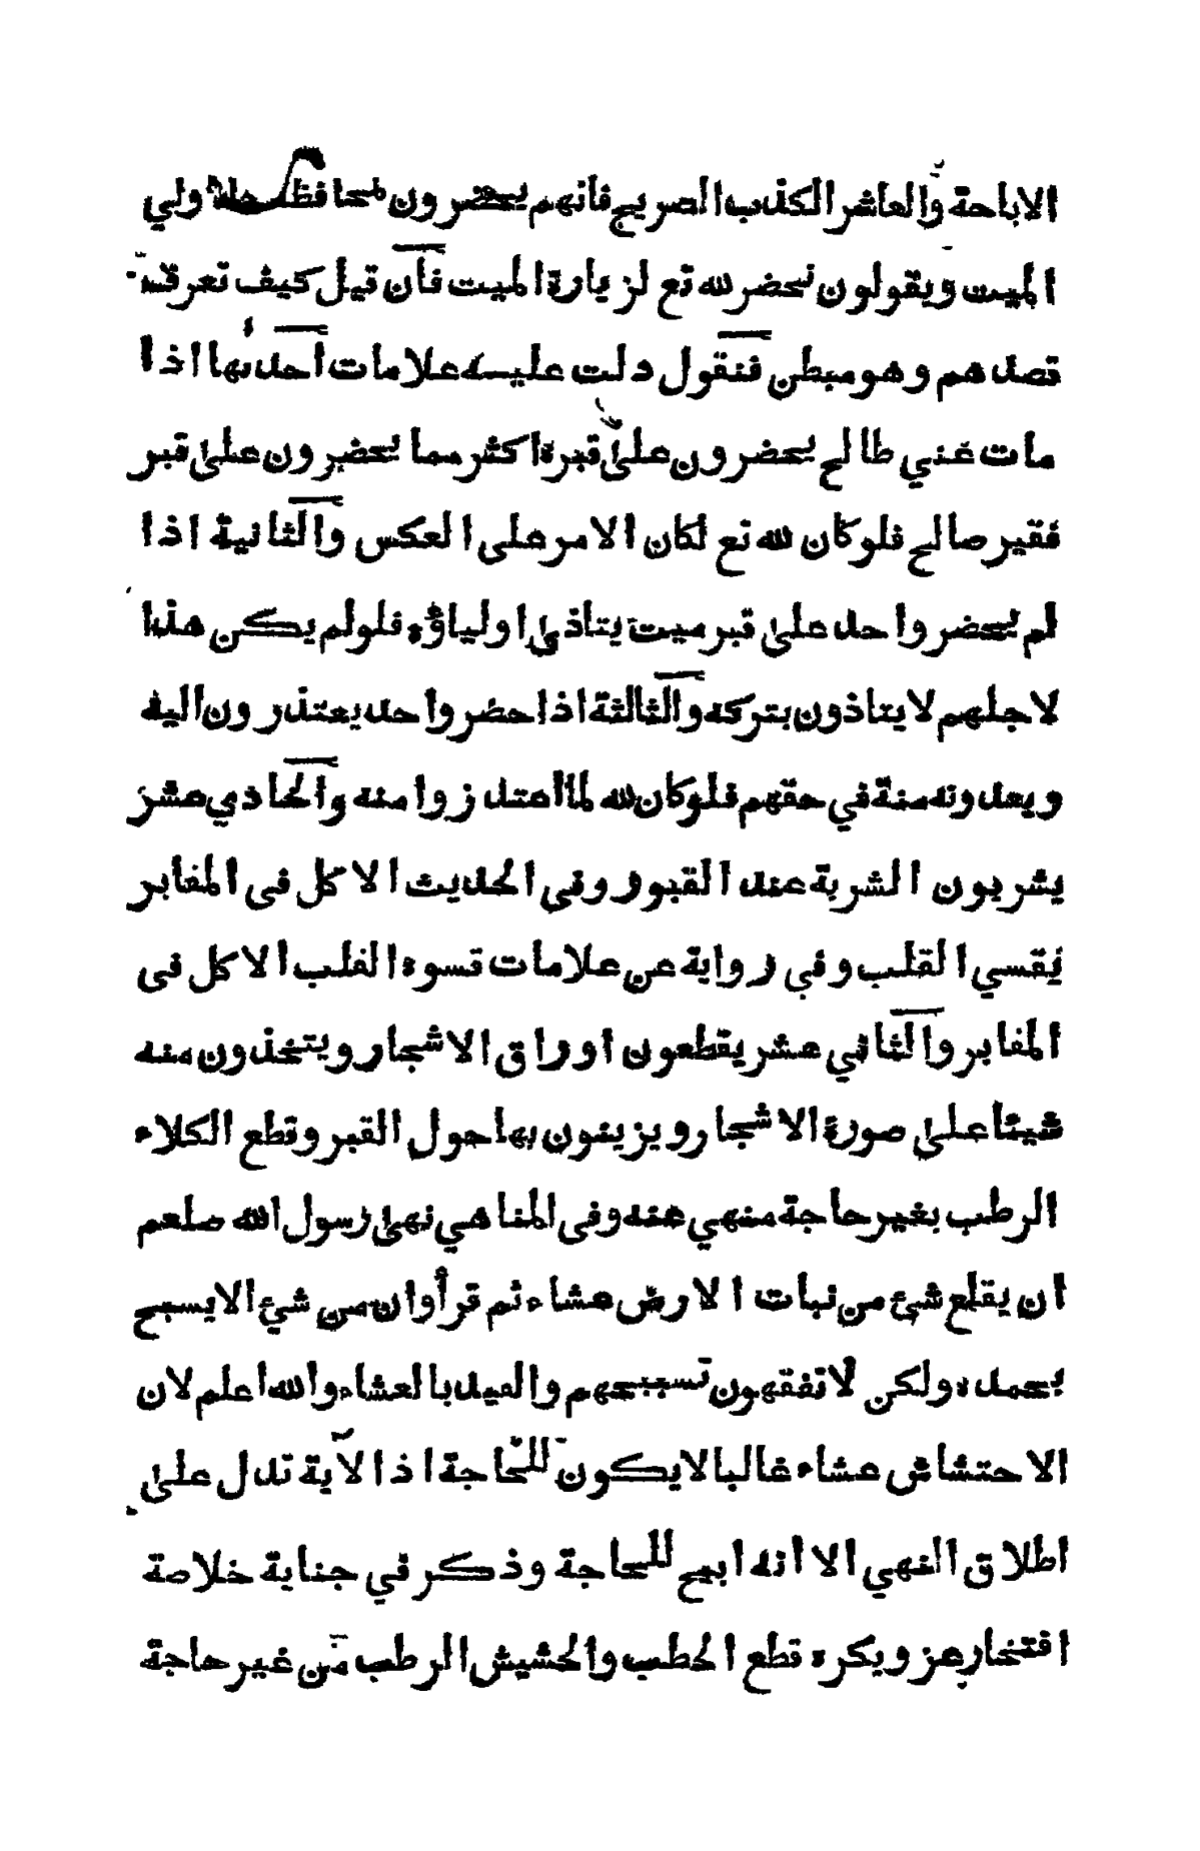 الاباحة والعاشر الكذب الصريح فانهم يحضرون لمحافظة ولي
الميت ويقولون نحضر لله تع لزيارة الميت فان قيل كيف تعرف
قصدهم وهو مبطن فنقول دلت عليه علامات احدىها اذا
مات غني طالح يحضرون على قبره اكثر مما يحضرون على قبر
فقير صالح فلو كان لله تع لكان الامر على العكس والثانية اذا
لم يحضر واحد على قبر ميت يتاذى اولياؤه فلو لم يكن هذا
لاجلهم لا يتاذون بتركه والثالثة اذا حضر واحد يعتذرون اليه
ويعدونه منة في حقهم فلو كان لله لما اعتذروا منه والحادي عشر
يشربون الشربة عند القبور وفي الحديث الاكل فى المقابر
يقسي القلب وفي رواية عن علامات قسوه القلب الاكل فى
المقابر والثاني عشر يقطعون اوراق الاشجار ويتخذون منه
شيئا على صورة الاشجار ويزينون بها حول القبر وقطع الكلاء
الرطب بغير حاجة منهي عنه وفى المناهي نهى رسول الله صلعم
ان يقلع شئ من نبات الارض عشاء ثم قرأ وان من شئ الا يسبح
بحمده ولكن لا تفقهون تسبيحهم والقيد بالعشاء والله اعلم لان
الاحتشاش عشاء غالبا لا يكون للحاجة اذ الآية تدل على
اطلاق النهي الا انه ابيح للحاجة وذكر في جناية خلاصة
افتخار عز ويكره قطع الحطب والحشيش الرطب من غير حاجة